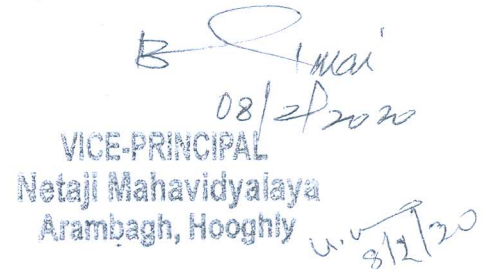 08/2/2020
VICE-PRINCIPAL
Netaji Mahavidyalaya
Arambagh, Hooghly
8/2/20